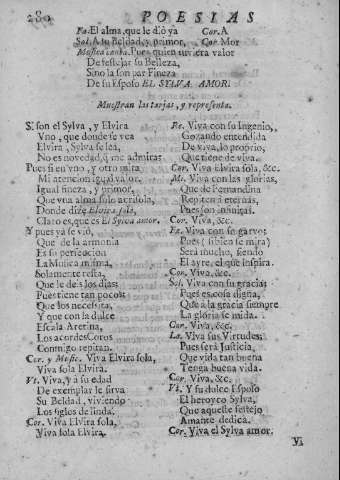 280 POESIAS
Fa. El alma, que le diò ya Cor. A
Sol. A tu Beldad, y primor, Cor. Mor
Musica canta. Pues quien tuviera valor
De festejar su Belleza,
Sino la son par Fineza
De su Esposo EL SYLVA AMOR.
Muestran las tarjas, y representa.
Si son el Sylva, y Elvira
Vno, que donde se vea
Elvira, Sylva se lea,
No es novedad, q̃ me admira:
Pues si en vno, y otro mira
Mi atencion igual valor,
Igual fineza, y primor,
Que vna alma solo acrisola,
Donde dize Elvira sola,
Claro es, que es El Sylva amor.
Y pues yà se viò,
Que de la armonia
Es su perfeccion
La Musica misma,
Solamente resta,
Que le deis los dias:
Pues tiene tan pocos
Que los necessita,
Y que con la dulce
Escala Aretina,
Los acordes Coros
Conmigo repitan.
Cor. y Music. Viva Elvira sola,
Viva sola Elvira.
Vt. Viva, y a su edad
De exemplar le sirva
Su Beldad, viviendo
Los siglos de linda.
Cor. Viva Elvira sola,
Viva sola Elvira.
Re. Viva con su Ingenio,
Gozando entendida
De viva, lo proprio,
Que tiene de viva.
Cor. Viva Elvira sola, &c.
Mi. Viva con las glorias,
Que de Fernandina
Repiten à eternas,
Pues son infinitas.
Cor. Viva, &c.
Fa. Viva con su garvo:
Pues (si bien se mira)
Serà mucho, siendo
El ayre, el que inspira.
Cor. Viva, &c.
Sol. Viva con su gracia:
Pues es cosa digna,
Que a la gracia siempre
La gloria se mida.
Cor. Viva, &c.
La. Viva sus Virtudes:
Pues serà Justicia,
Que vida tan buena
Tenga buena vida.
Cor. Viva, &c.
Vt. Y su dulce Esposo
El heroyco Sylva,
Que aqueste festejo
Amante dedica.
Cor. Viva el Sylva amor.
Vi